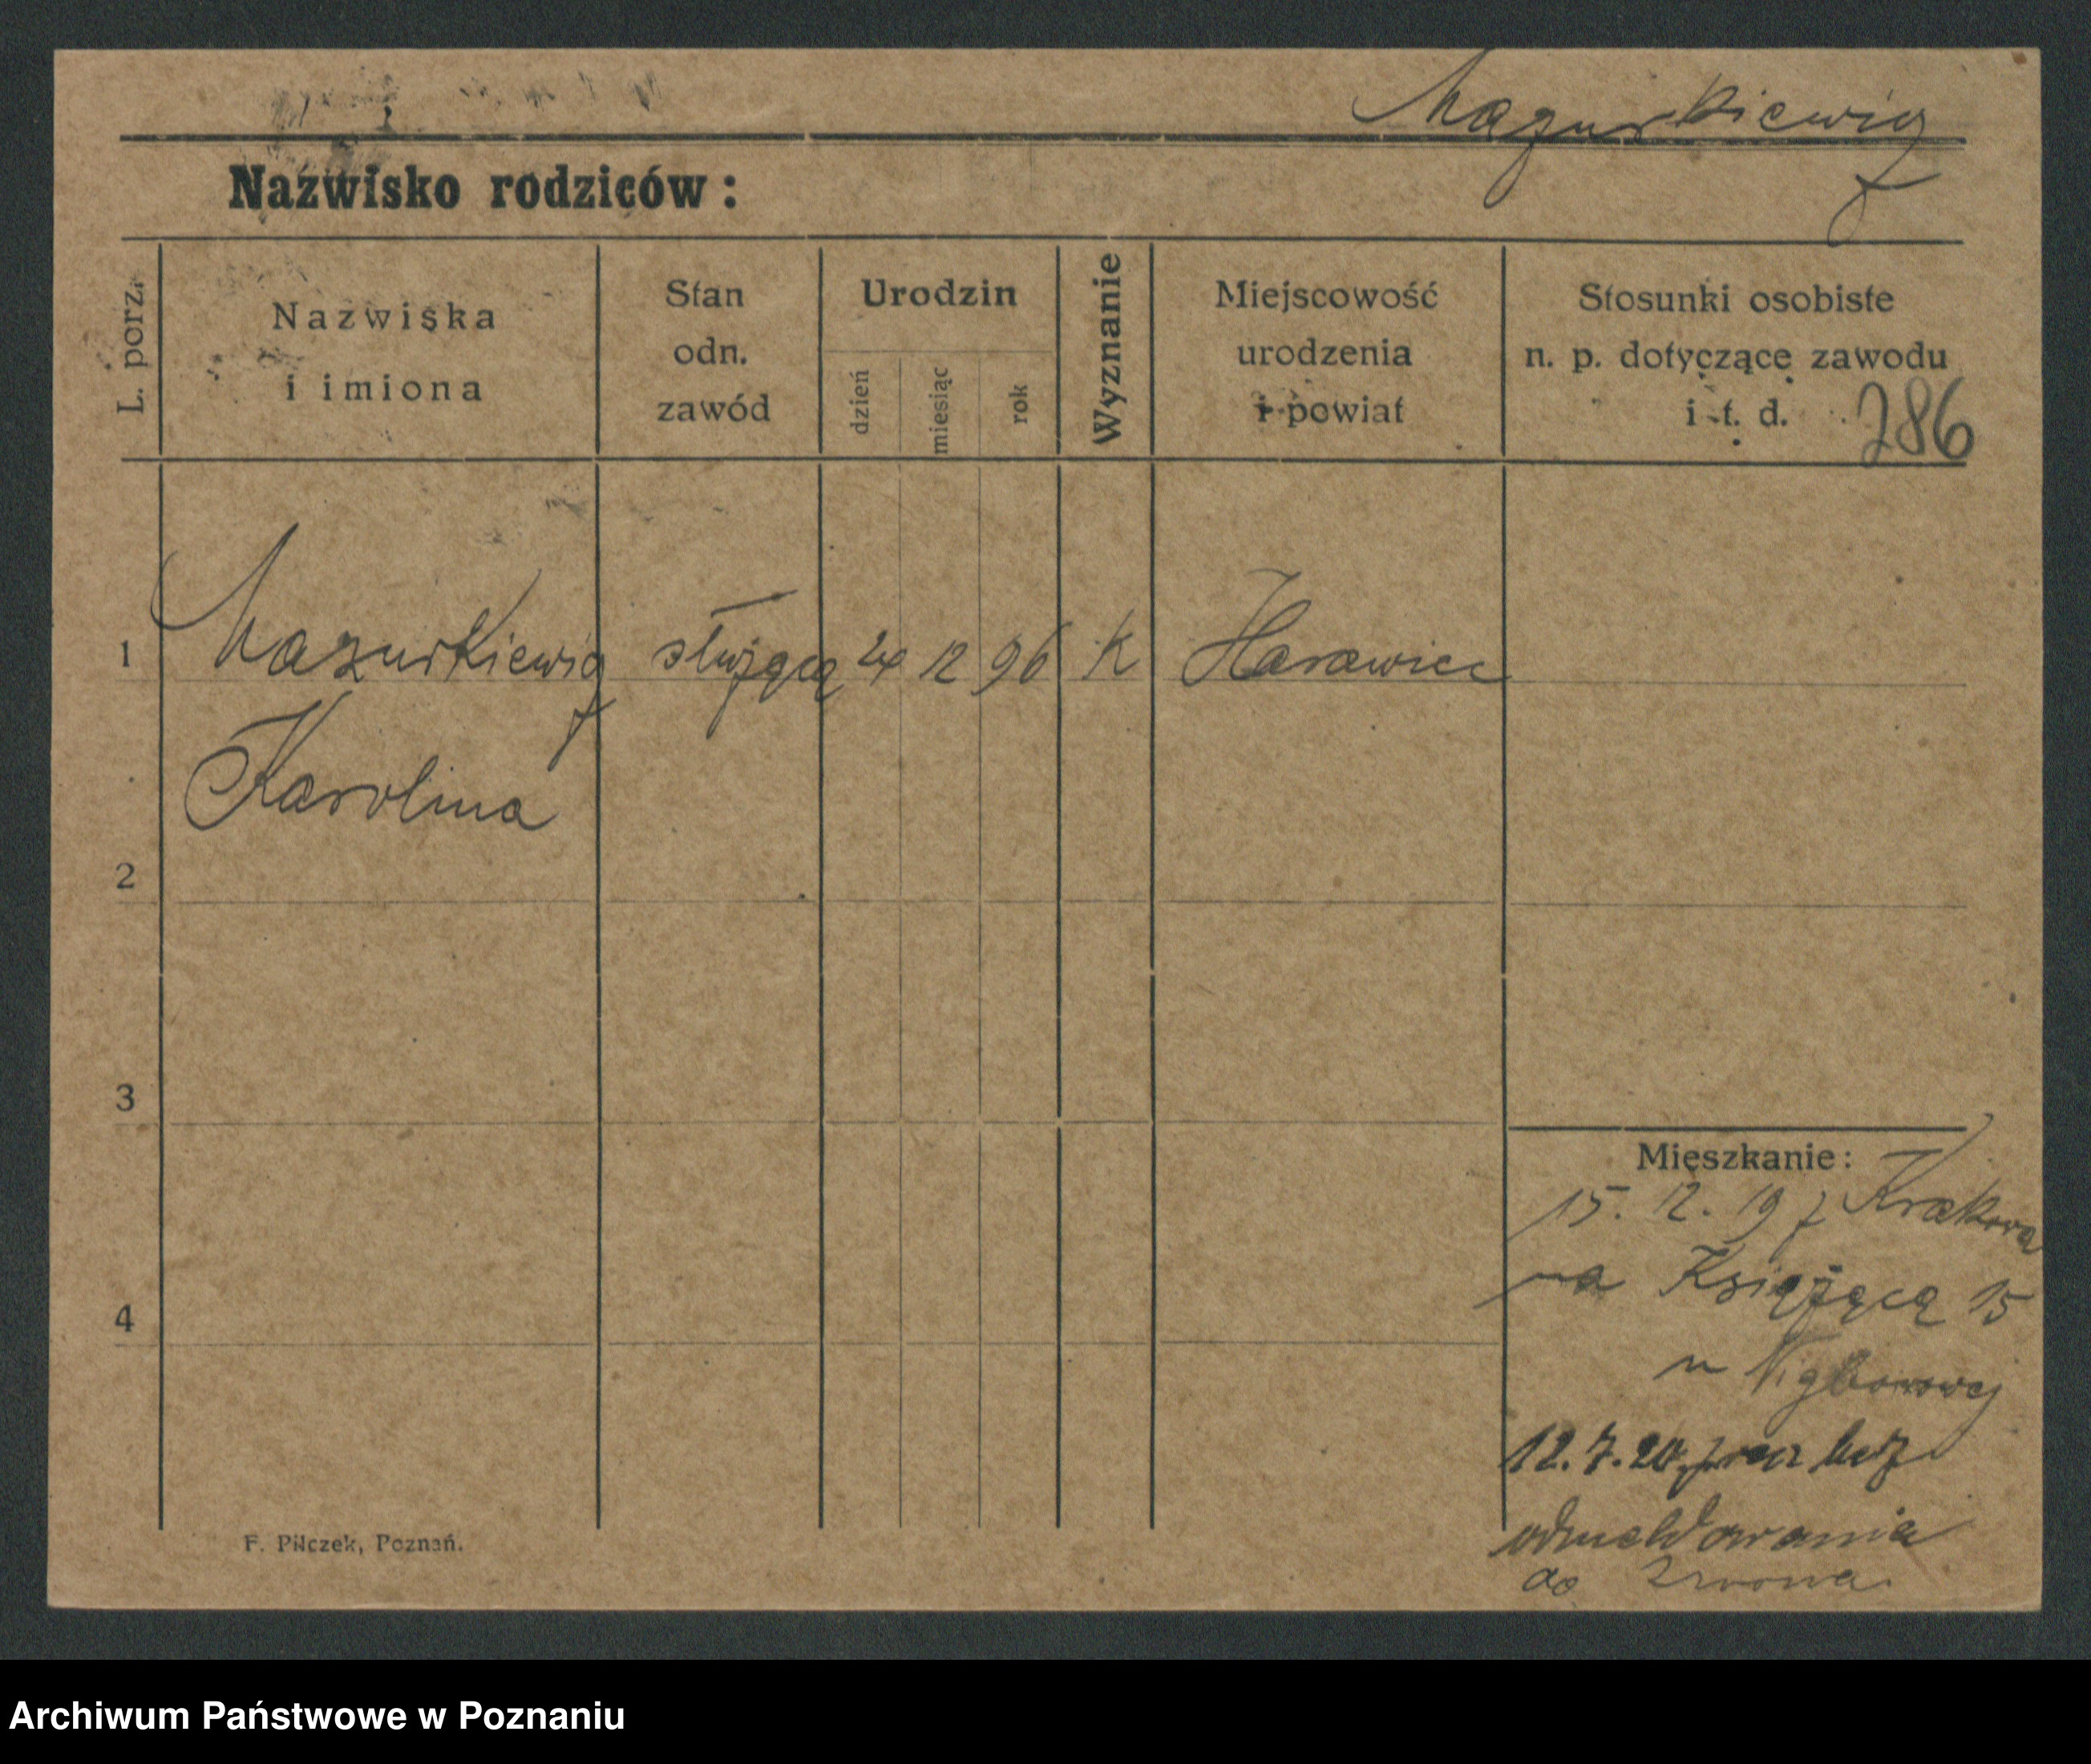 Mazurkiewicz
Nazwisko rodziców:
L. porz.
Nazwiska
i imiona
Stan
odn.
zawód
Urodzin
dzień
miesiąc
rok
Wyznanie
Miejscowość
urodzenia
i powiat
Stosunki osobiste
n. p. dotyczące zawodu
i t. d.
286
1 Mazurkiewicz służącą 24 12 96 K Harawiec
Karolina
2
3
4
Mieszkanie:
15. 12. 19 z Krakowa
na Książęcą 15
u
12. 7. 20. bez
odmeldowania
do Lwowa.
F. Pilczek, Poznań.
Archiwum Państwowe w Poznaniu